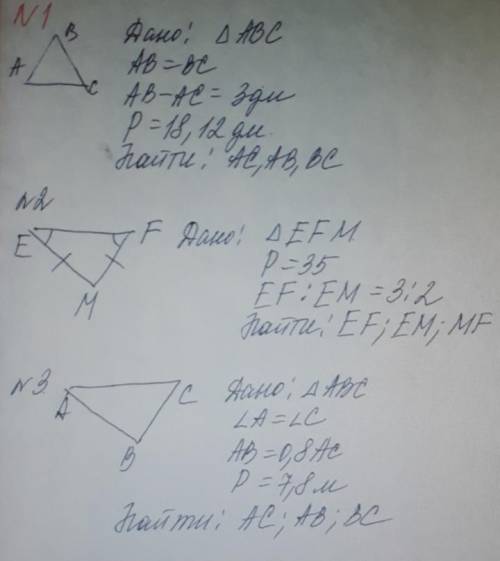 N1
B
A
C
Дано: △ ABC
AB = BC
AB - AC = 3дм
P = 18,12 дм.
Найти: AC, AB, BC
N2
E
F
M
Дано: △ EFM
P = 35
EF : EM = 3 : 2
Найти: EF; EM; MF
N3.
A
C
B
Дано: △ ABC
∠A = ∠C
AB = 0,8 AC
P = 7,8 м
Найти: AC; AB; BC